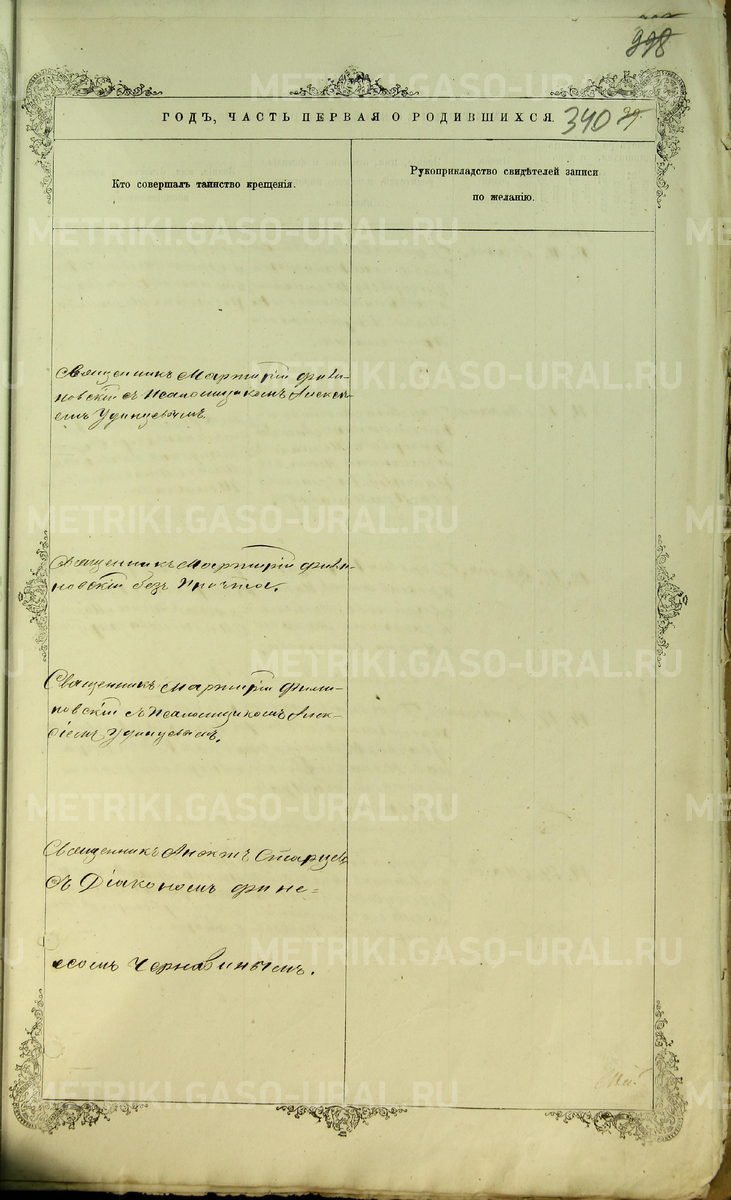 998
ГОДЪ, ЧАСТЬ ПЕРВАЯ О РОДИВШИХСЯ.
340
39
Кто совершалъ таинство крещенія.
Рукоприкладство свидѣтелей записи
по желанію.
Священникъ Мартирій Фили-
повскій съ Псаломщикомъ Алексѣ-
емъ Удинцевымъ.
Священникъ Мартирій Фили-
повскій безъ причта.
Священникъ Мартирій Фили-
повскій съ Псаломщикомъ Алек-
сіемъ Удинцевымъ.
Священникъ Старцевъ
съ Діакономъ Фине-
есомъ Чернавинымъ.
METRIKI.GASO-URAL.RU